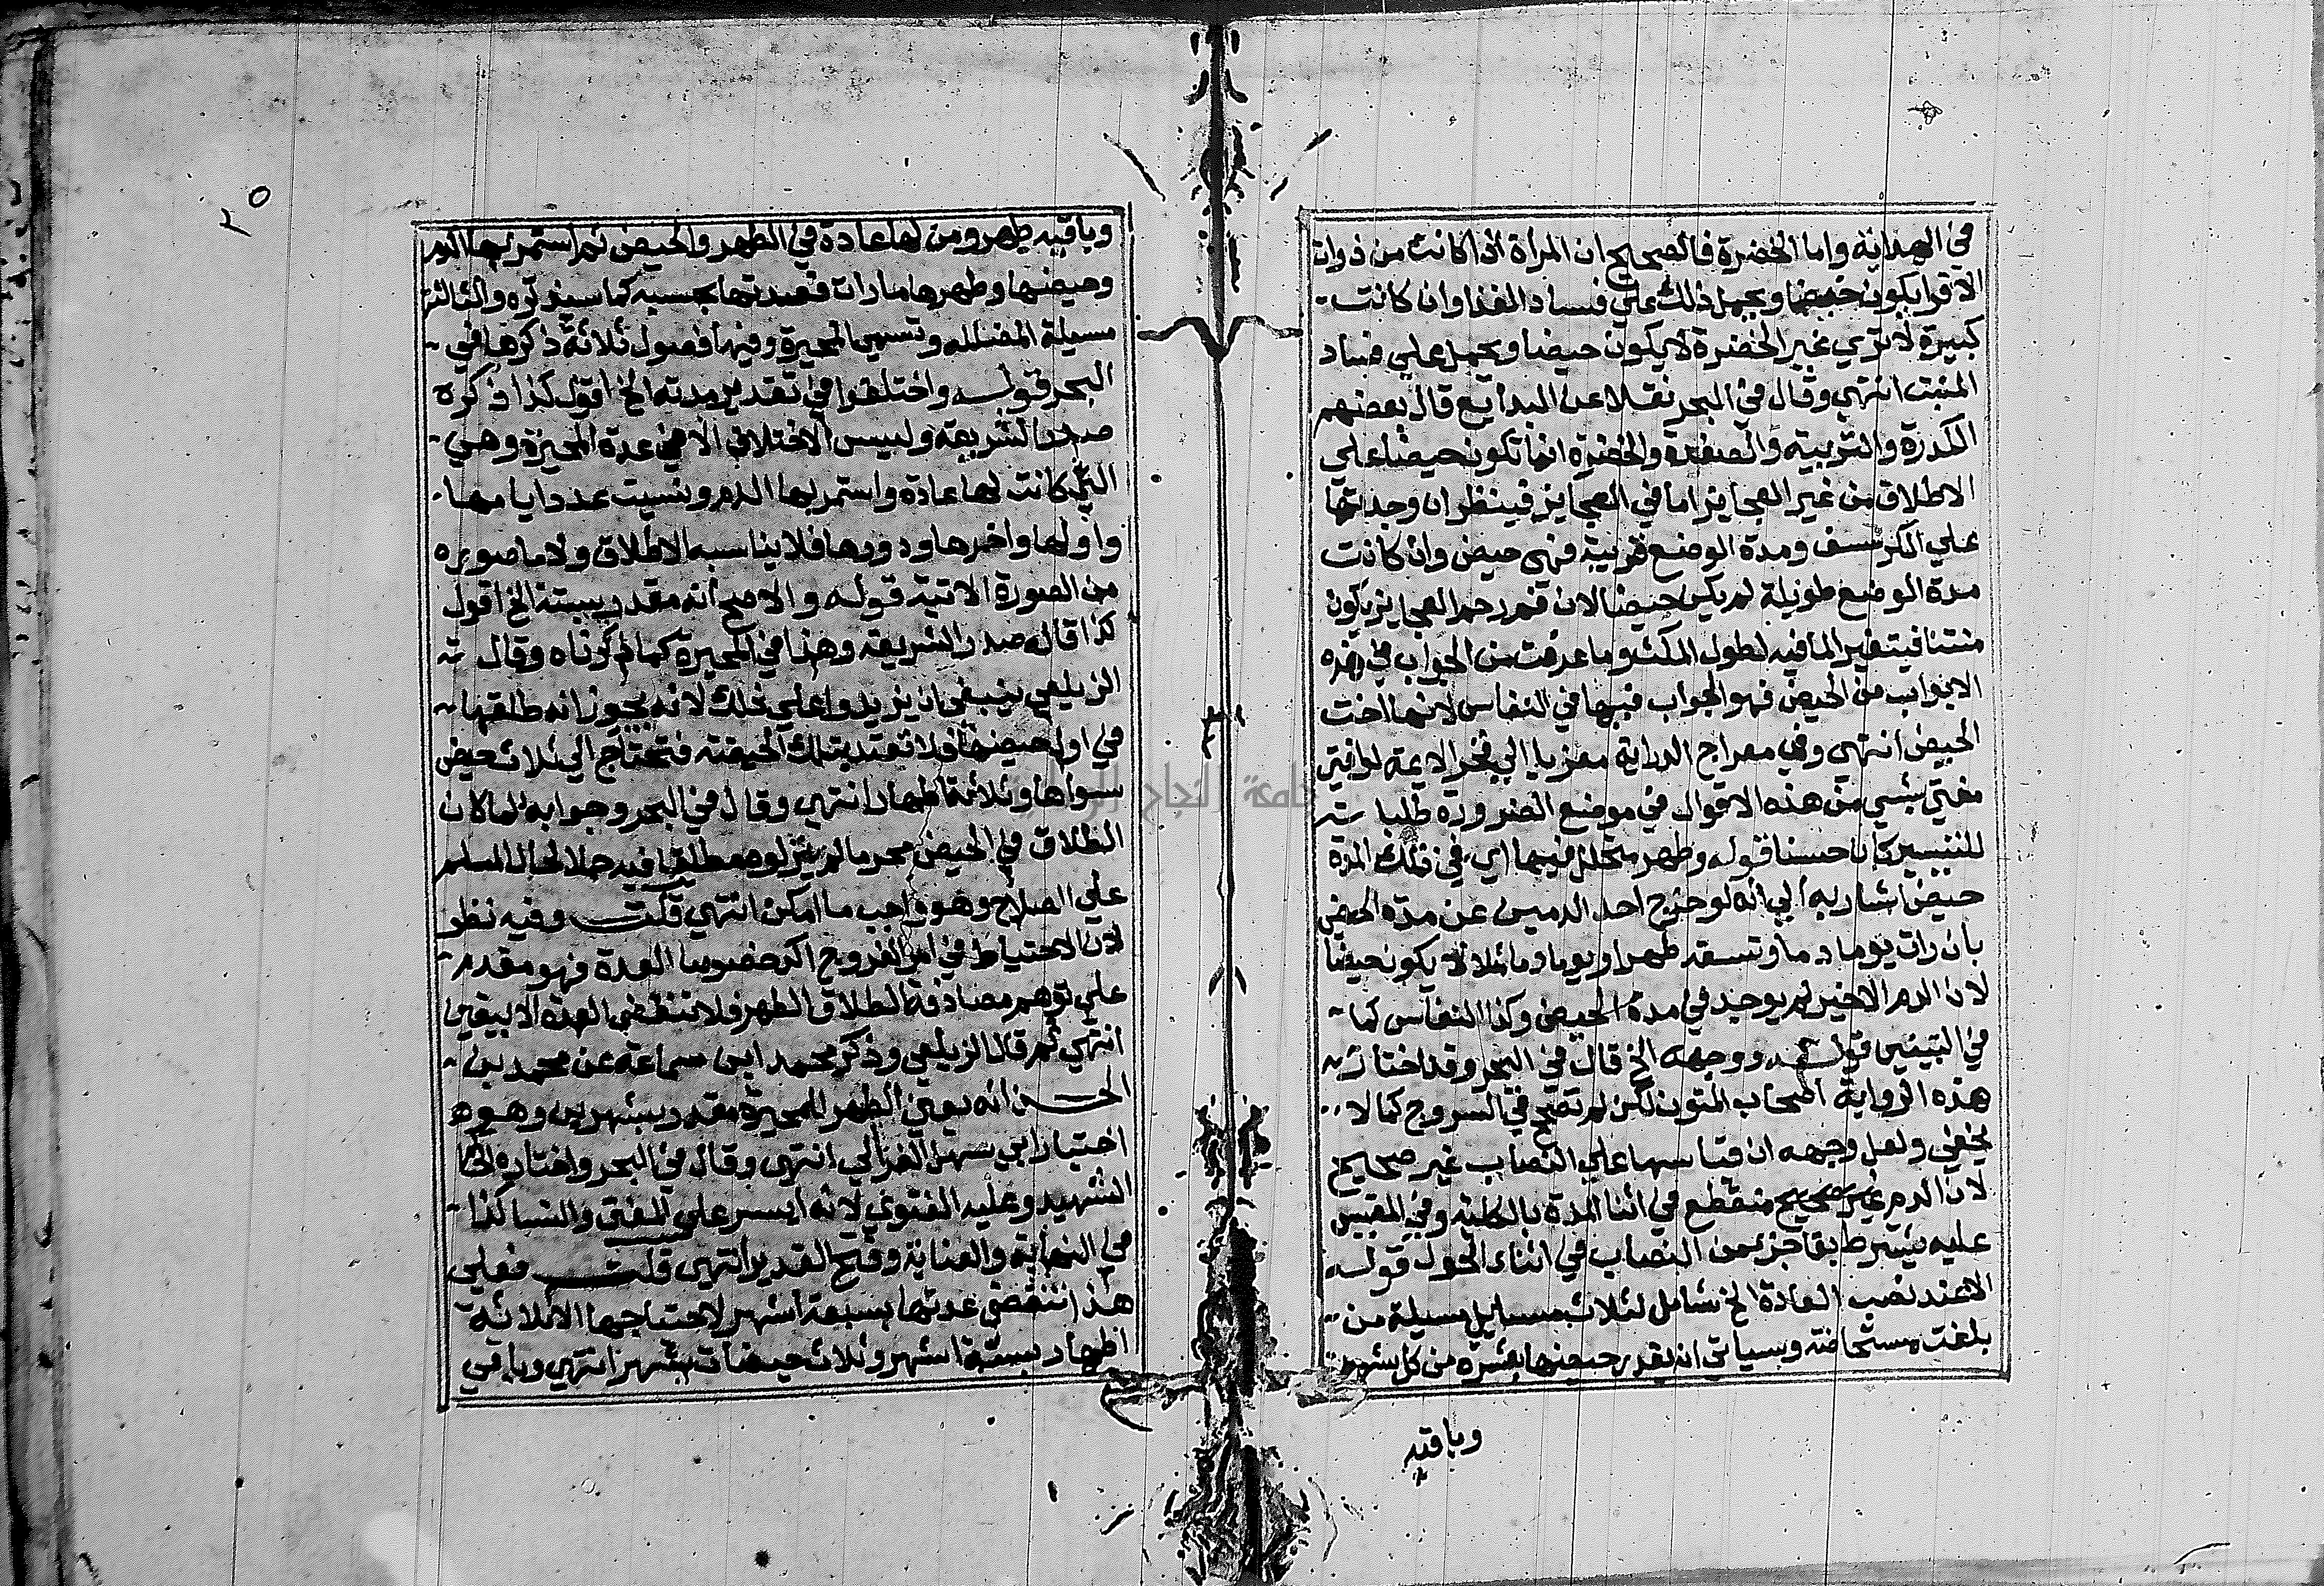 في الهداية واما الخضرة فالصحيح ان المرأة اذا كانت من ذوات
الاقرا يكون حيضا ويحمل ذلك علي فساد الغذا وان كانت
كبيرة لا تري غير الخضرة لا يكون حيضا ويحمل علي فساد
المنبت انتهي وقال في البحر نقلا عن البدايع قال بعضهم
الكدرة والتربية والصفرة والخضرة انما تكون حيضا علي
الاطلاق من غير العجايز اما في العجايز فينظر ان وجدتها
علي الكرسف ومدة الوضع قريبة فهي حيض وان كانت
مدة الوضع طويلة لم يكن حيضا لان فم رحم العجايز يكون
منتنا فيتغير الما فيه لطول المكث وما عرفت من الجواب في هذه
الابواب من الحيض فهو الجواب فيها في النفاس لانها اخت
الحيض انتهي وفي معراج الدراية معزيا الي فخر الايمة لو افتي
مفتي بشي من هذه الاقوال في موضع الضرورة طلبا
للتيسير كان حسنا قوله وطهر متخلل فيهما اي في تلك المدة
حيض اشار به الي انه لو خرج احد الدمين عن مدة الحيض
بان رات يوما دما وتسعة طهرا ويوما دما مثلا لا يكون حيضا
لان الدم الاخير لم يوجد في مدة الحيض وكذا النفاس كما
في التبيين قوله ووجهه الخ قال في البحر وقد اختار
هذه الرواية اصحاب المتون لكن لم تصحح في الشروح كما لا
يخفي ولعل وجهه ان قياسها علي النصاب غير صحيح
لان الدم غير صحيح منقطع في اثنا المدة بالكلية وفي المقيس
عليه يشترط بقا جزء من النصاب في اثناء الحول قوله
الا عند نصب العادة الخ شامل لثلاث مسايل مسيلة من
بلغت مستحاضة وسياتي انه يقدر حيضها بعشرة من كل شهر
وباقيه
٢٥
وباقيه طهر ومن لها عادة في الطهر والحيض ثم استمر بها الدم
وحيضها وطهرها ما رات فعدتها بحسبه كما سيذكره والثالثة
مسيلة المضللة وتسمي المحيرة وفيها فصول ثلاثة ذكرها في
البحر قوله واختلفوا في تقدير مدته الخ اقول كذا ذكره
صدر الشريعة وليس الاختلاف الا في عدة المحيرة وهي
التي كانت لها عادة واستمر بها الدم ونسيت عدد ايامها
واولها واخرها ودورها فلا يناسبه الاطلاق ولا ما صوره
من الصورة الاتية قوله والاصح انه مقدر بستة الخ اقول
كذا قاله صدر الشريعة وهذا في المحيرة كما ذكرناه وقال
الزيلعي ينبغي ان يزيدوا علي ذلك لانه يجوز انه طلقها
في اول حيضها فلا تعتد بتلك الحيضة فتحتاج الي ثلاث حيض
سواها وثلاثة اطهار انتهي وقال في البحر وجوابه لما كان
الطلاق في الحيض محرما لم ينزلوه مطلقا فيه حملا لحال المسلم
علي الصلاح وهو واجب ما امكن انتهي قلت وفيه نظر
لان الاحتياط في امر الفروج اكد خصوصا العدة فهو مقدم
علي توهم مصادفة الطلاق الطهر فلا تنقضي العدة الا بيقين
انتهي ثم قال الزيلعي وذكر محمد ابن سماعة عن محمد بن
الحسن انه يعين الطهر للمحيرة مقدر بشهرين وهو
اختيار ابي سهل الغزالي انتهي وقال في البحر واختاره الحاكم
الشهيد وعليه الفتوي لانه ايسر علي المفتي والنسا كذا
في النهاية والعناية وفتح القدير انتهي قلت فعلي
هذا تنقضي عدتها بسبعة اشهر لاحتياجها الا ثلاثة
اطهار بستة اشهر وثلاث حيضات بشهر انتهي وباقي
جامعة النجاح